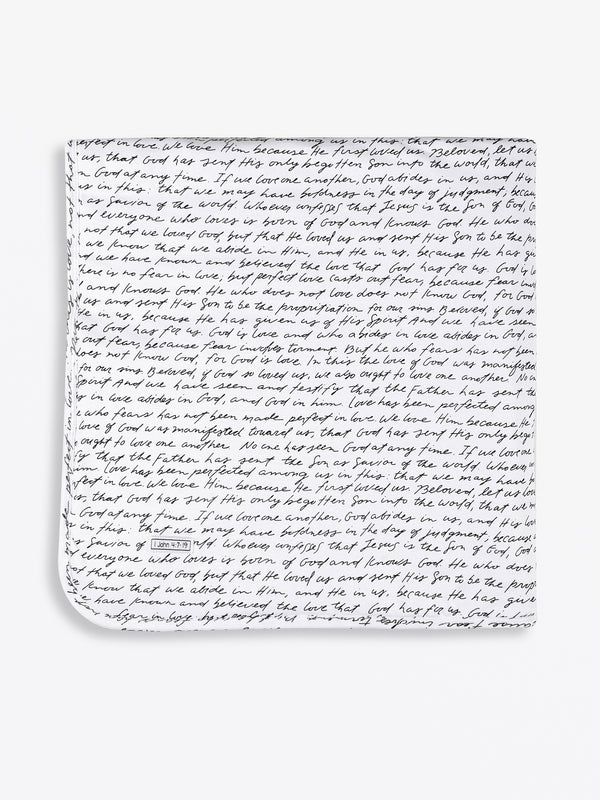 perfect in love We love Him because He first loved us. Beloved, let us
us, that God has sent His only begotten Son into the world, that we
God at any time. If we love one another, God abides in us, and His
us in this: that we may have boldness in the day of judgment; because
as Savior of the world. Whoever confesses that Jesus is the Son of God,
and everyone who loves is born of God and knows God. He who does
not that we loved God, but that He loved us and sent His Son to be the
we know that we abide in Him, and He in us, because He has
And we have known and believed the love that God has for us. God is
There is no fear in love; but perfect love casts out fear, because fear
and knows God. He who does not love does not know God, for God
us and sent His Son to be the propitiation for our sins Beloved, if God so
He in us, because He has given us of His Spirit And we have seen
that God has for us. God is love and who abides in love abides in God,
out fear, because fear involves torment. But he who fears has not been
does not know God, for God is love. In this the love of God was manifested
for our sins Beloved, if God so loved us, we also ought to love one another. No
Spirit And we have seen and testify that the Father has sent the
in love abides in God, and God in him love has been perfected among
who fears has not been made perfect in love We love Him because He
love of God was manifested toward us, that God has sent His only
ought to love one another No one has seen God at any time. If we love one
that the Father has sent the Son as Savior of the world. Whoever
him love has been perfected among us in this: that we may have
perfect in love We love Him because He first loved us. Beloved, let us love
us, that God has sent His only begotten Son into the world, that we
God at any time. If we love one another, God abides in us, and His
in this: that we may have boldness in the day of judgment; because
as Savior of world. Whoever confesses that Jesus is the Son of God,
1 John 4:7-19
everyone who loves is born of God and knows God. He who does
not that we loved God but that He loved us and sent His Son to be the
know that we abide in Him, and He in us, because He has
have known and believed the love that God has for us God